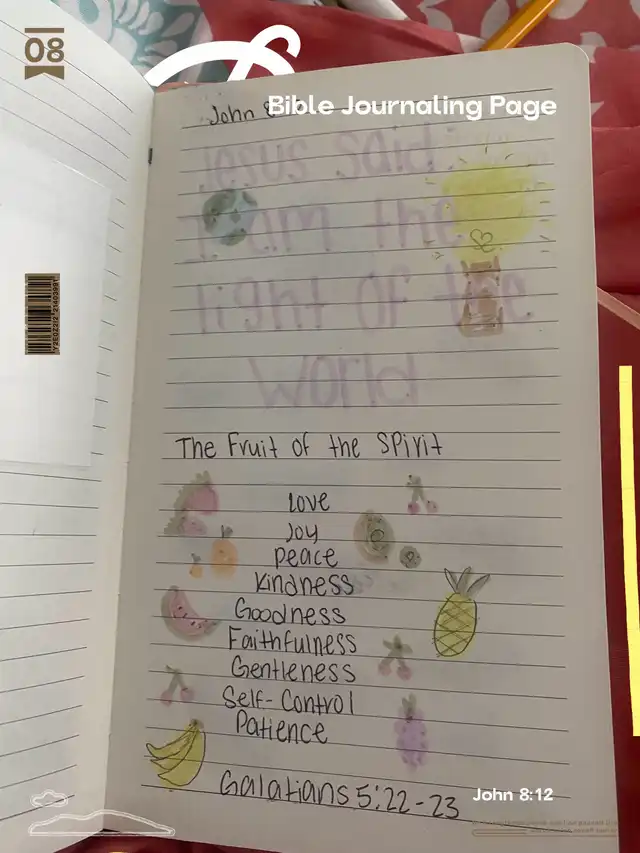 08
Bible Journaling Page
John 8
Jesus said
I am the
light of the
World
The Fruit of the Spirit
Love
Joy
peace
Kindness
Goodness
Faithfulness
Gentleness
Self-Control
Patience
Galatians 5:22-23
John 8:12